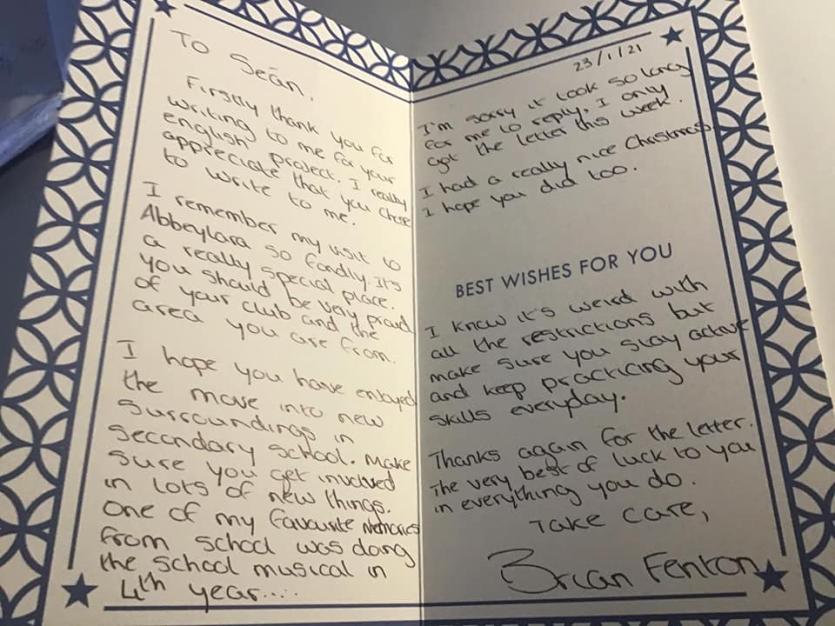 To Seán,
Firstly thank you for
writing to me for your
english project. I really
appreciate that you chose
to write to me.
I remember my visit to
Abbeylara so fondly. It's
a really special place.
you should be very proud
of your club and the
area you are from.
I hope you have enjoyed
the move into new
surroundings in
secondary school. Make
sure you get involved
in lots of new things.
One of my favourite memories
from school was doing
the school musical in
4th year.....
23/1/21
I'm sorry it took so long
for me to reply. I only
got the letter this week.
I had a really nice Christmas
I hope you did too.
BEST WISHES FOR YOU
I know it's weird with
all the restrictions but
make sure you stay active
and keep practicing your
skills everyday.
Thanks again for the letter.
The very best of luck to you
in everything you do.
Take care,
Brian Fenton